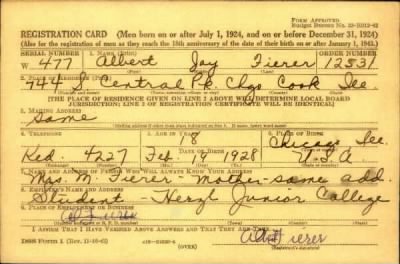 FORM APPROVED
REGISTRATION CARD—(Men born on or after July 1, 1924, and on or before December 31, 1924)
(Also for the registration of men as they reach the 18th anniversary of the date of their birth on or after January 1, 1943.)
SERIAL NUMBER
ORDER NUMBER
W 477 Albert Jay Fierer 12531
2. PLACE OF RESIDENCE
744 S. Central Pk Chgo Cook Ill.
[THE PLACE OF RESIDENCE GIVEN ON LINE 2 ABOVE WILL DETERMINE LOCAL BOARD
JURISDICTION; LINE 2 OF REGISTRATION CERTIFICATE WILL BE IDENTICAL]
3. MAILING ADDRESS
Same
4. TELEPHONE
5. AGE IN YEARS
18
6. PLACE OF BIRTH
Chicago Ill.
Ked. 4227
DATE OF BIRTH
Feb 14 1928
U.S.A.
7. NAME AND ADDRESS OF PERSON WHO WILL ALWAYS KNOW YOUR ADDRESS
Mrs. M. Fierer - Mother - same add
8. EMPLOYER'S NAME AND ADDRESS
Student - Herzl Junior College
9. PLACE OF EMPLOYMENT OR BUSINESS
I AFFIRM THAT I HAVE VERIFIED ABOVE ANSWERS AND THAT THEY ARE TRUE.
DSS FORM 1
(OVER)
Albert Fierer
(Registrant's signature)